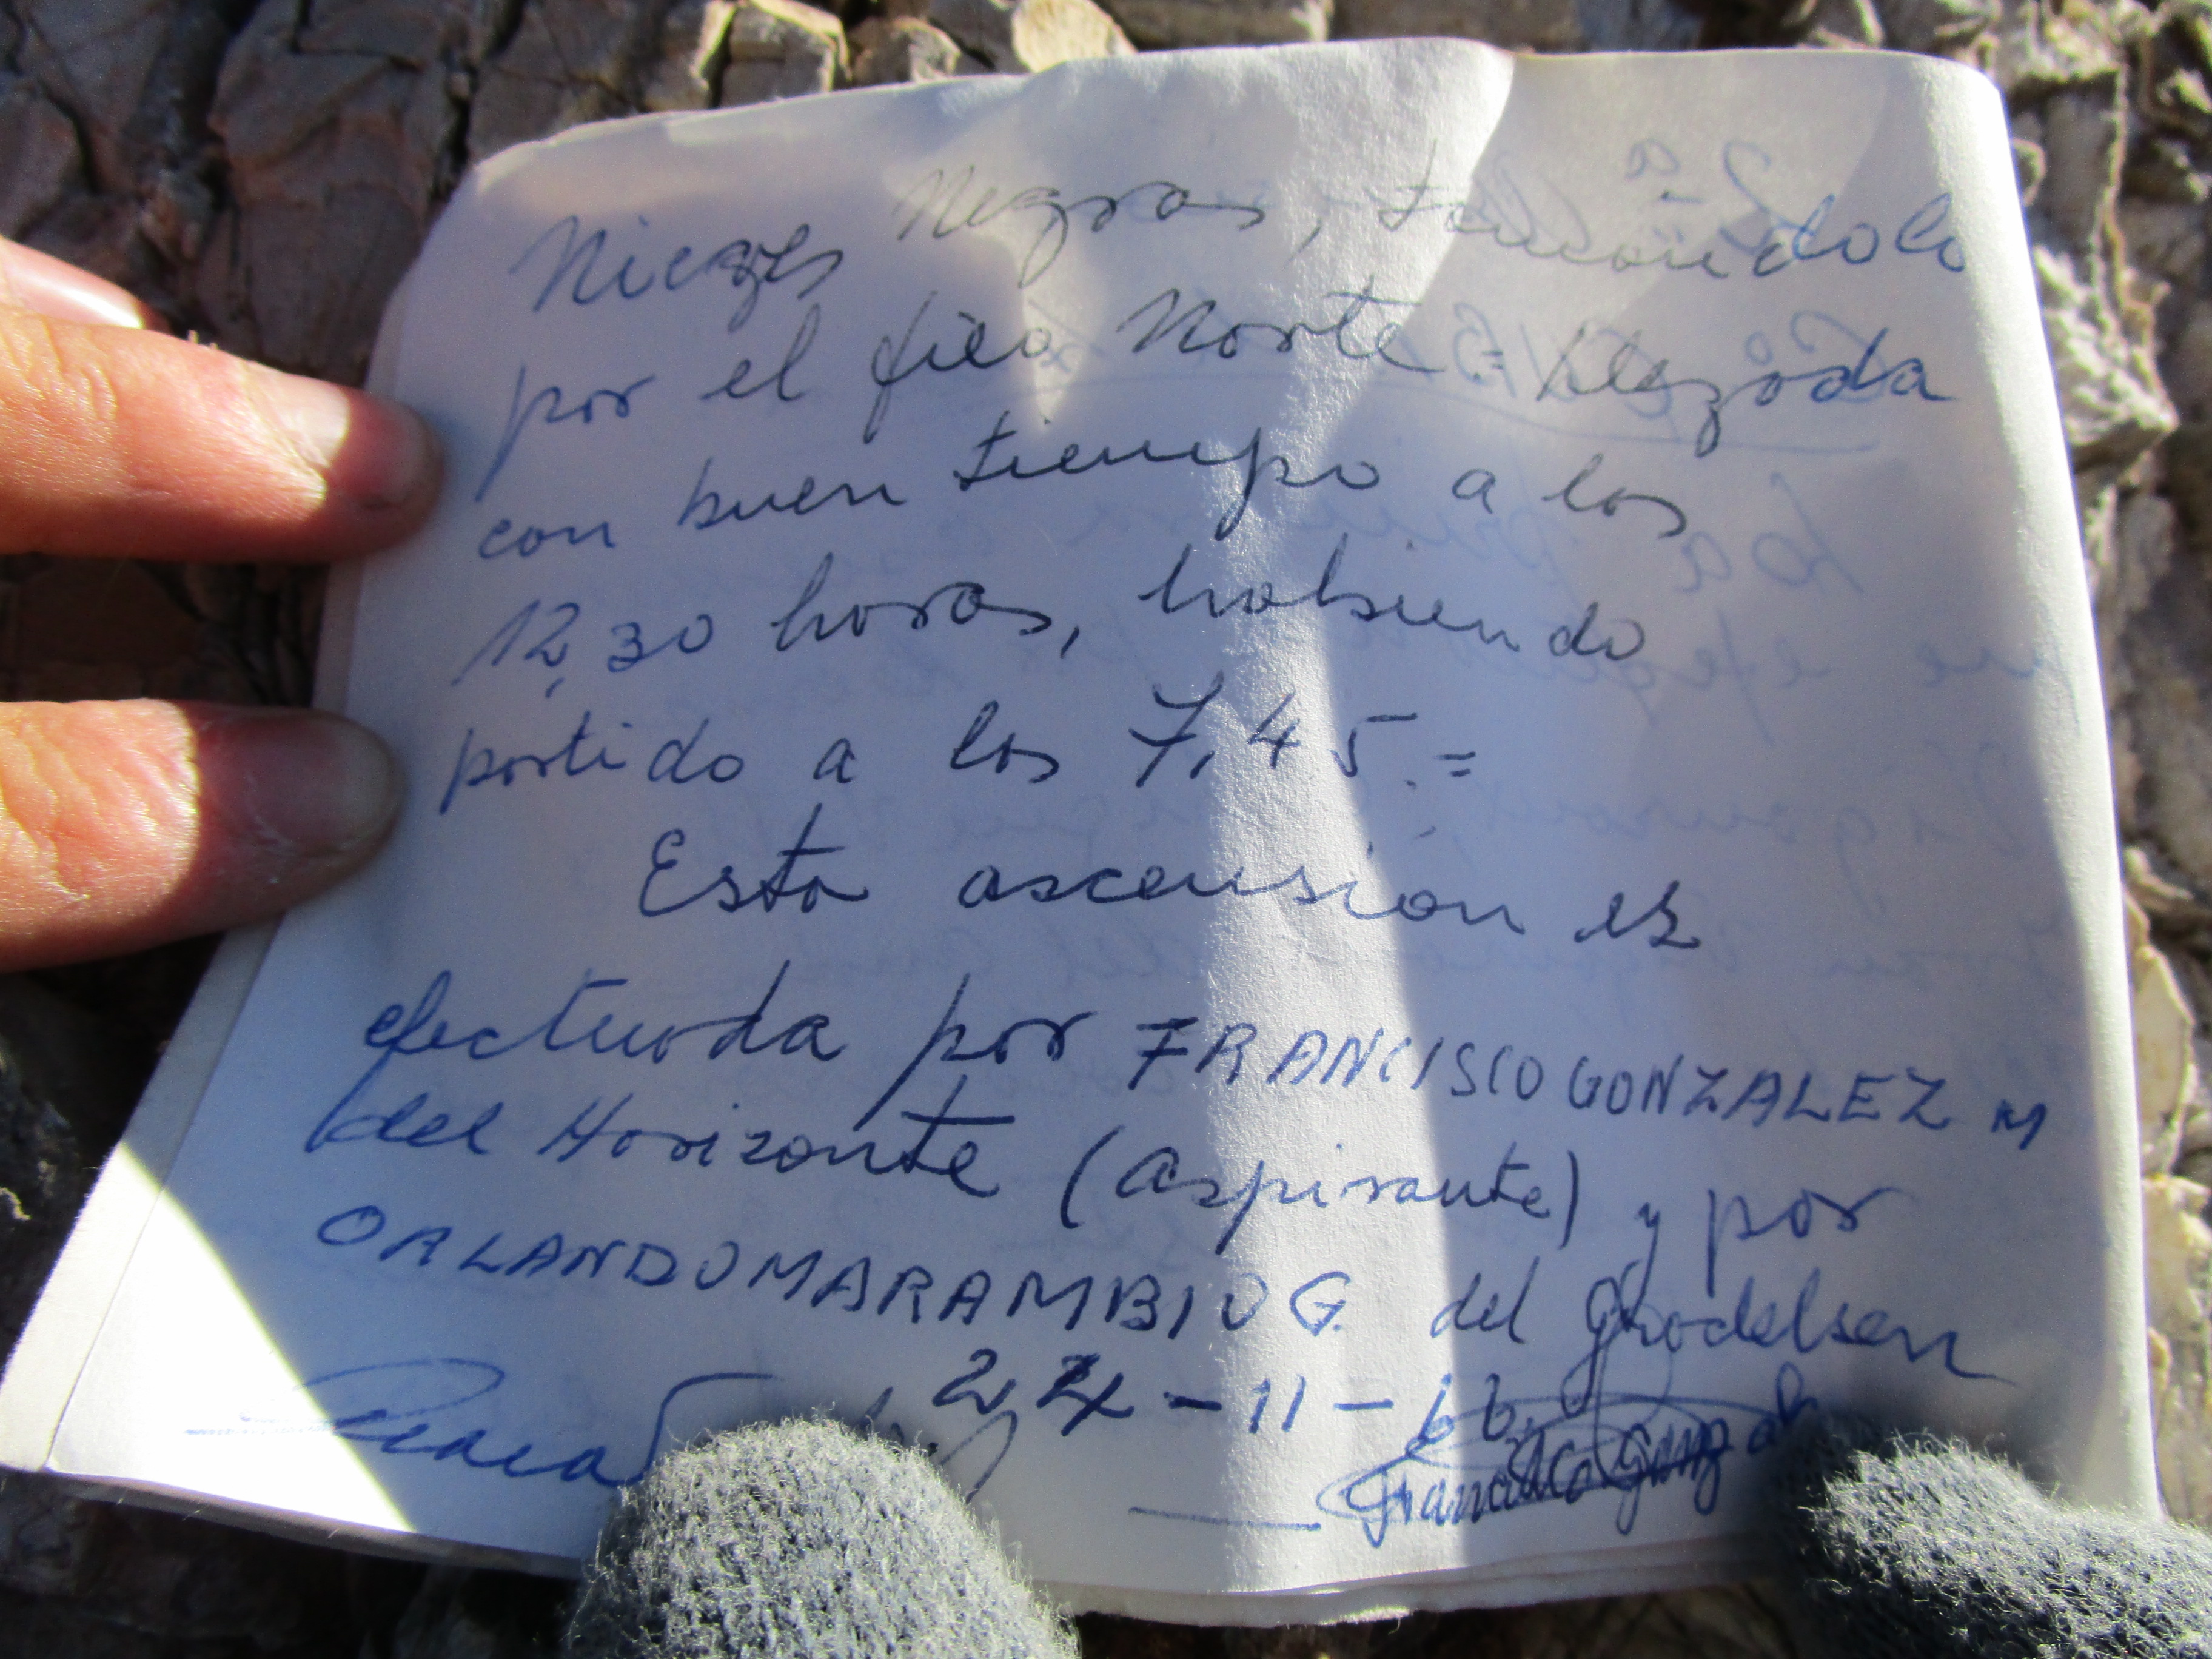 Nieves Negras, tomándolo
por el filo Norte = Llegada
con buen tiempo a las
12,30 horas, habiendo
partido a las 7,45.=
Esta ascensión es
efectuada por FRANCISCO GONZALEZ M
del Horizonte (Aspirante) y por
ORLANDO MARAMBIO G. del Grodelsen
24-11-66.
Francisco Gonzalez